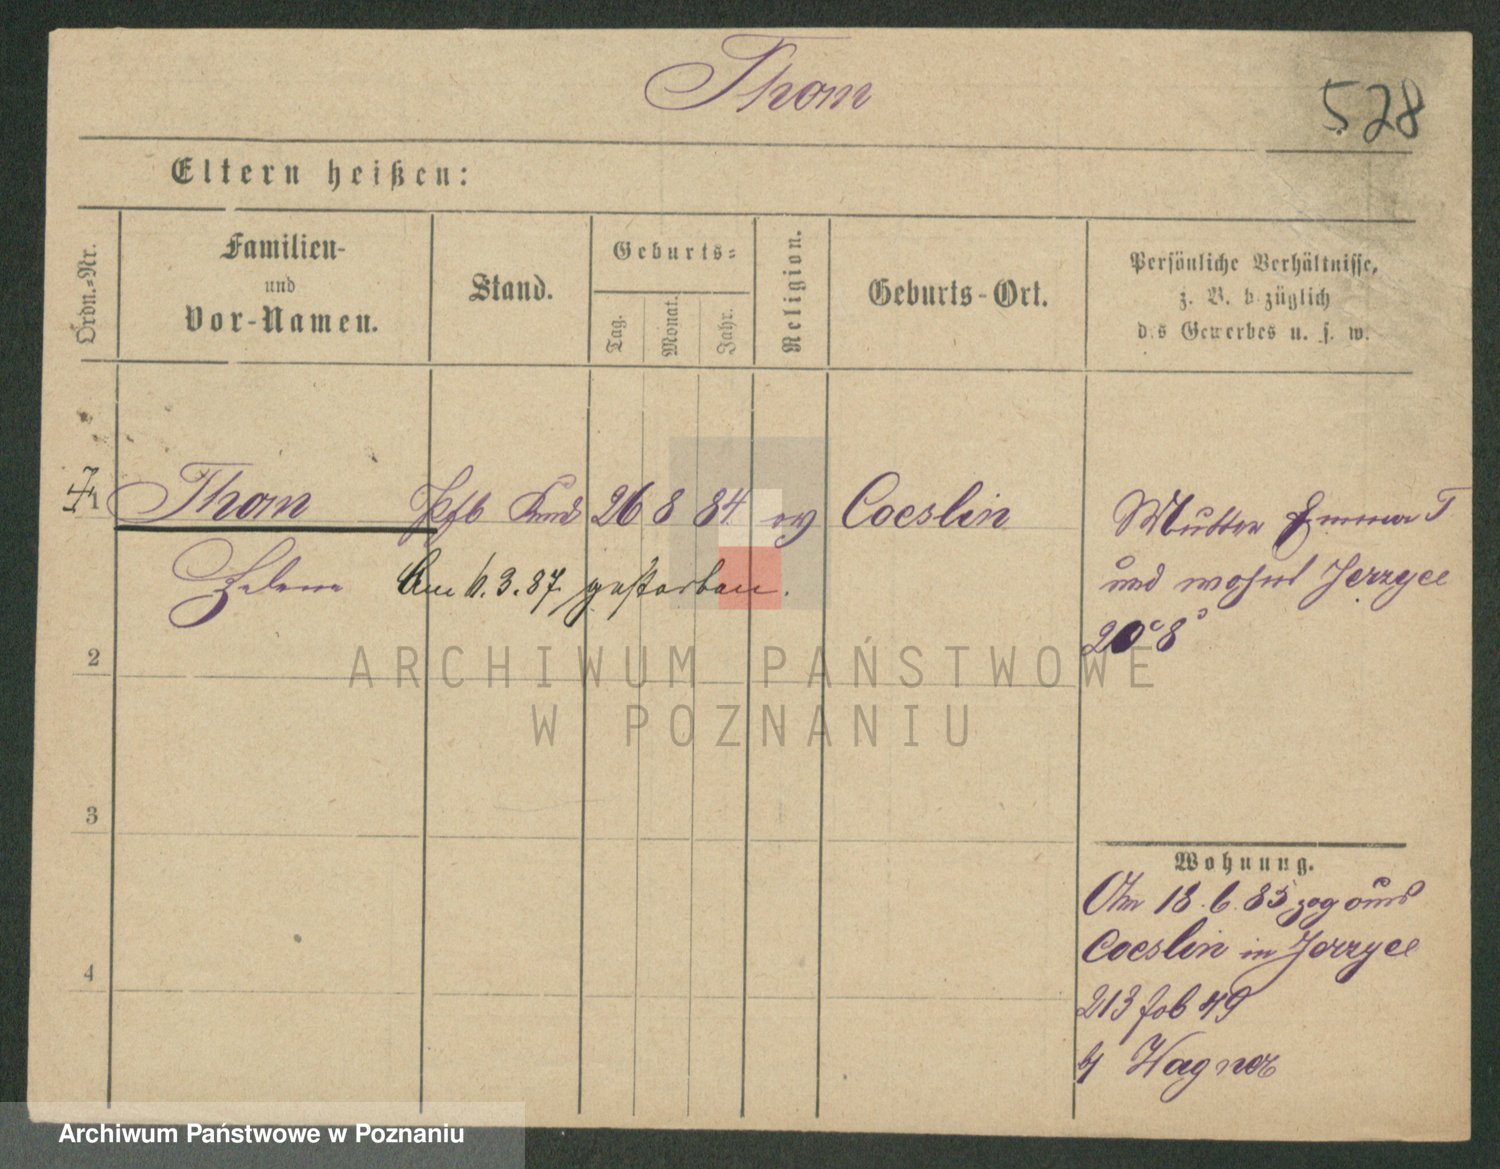 Thom
528
Eltern heißen:
Ordn.-Nr.
Familien-
und
Vor-Namen.
Stand.
Geburts-
Tag.
Monat.
Jahr.
Religion.
Geburts-Ort.
Persönliche Verhältnisse,
z. B. bezüglich
des Gewerbes u. s. w.
1 Thom Kind 26 8 84 ev Coeslin
Helene Am 6.3.87. gestorben.
Mutter Emma T
und wohnt Jerzyce
2
3
4
Wohnung.
Am 18.6.85 zog aus
Coeslin in Jerzyce
213
Wagner
ARCHIWUM PAŃSTWOWE
W POZNANIU
Archiwum Państwowe w Poznaniu